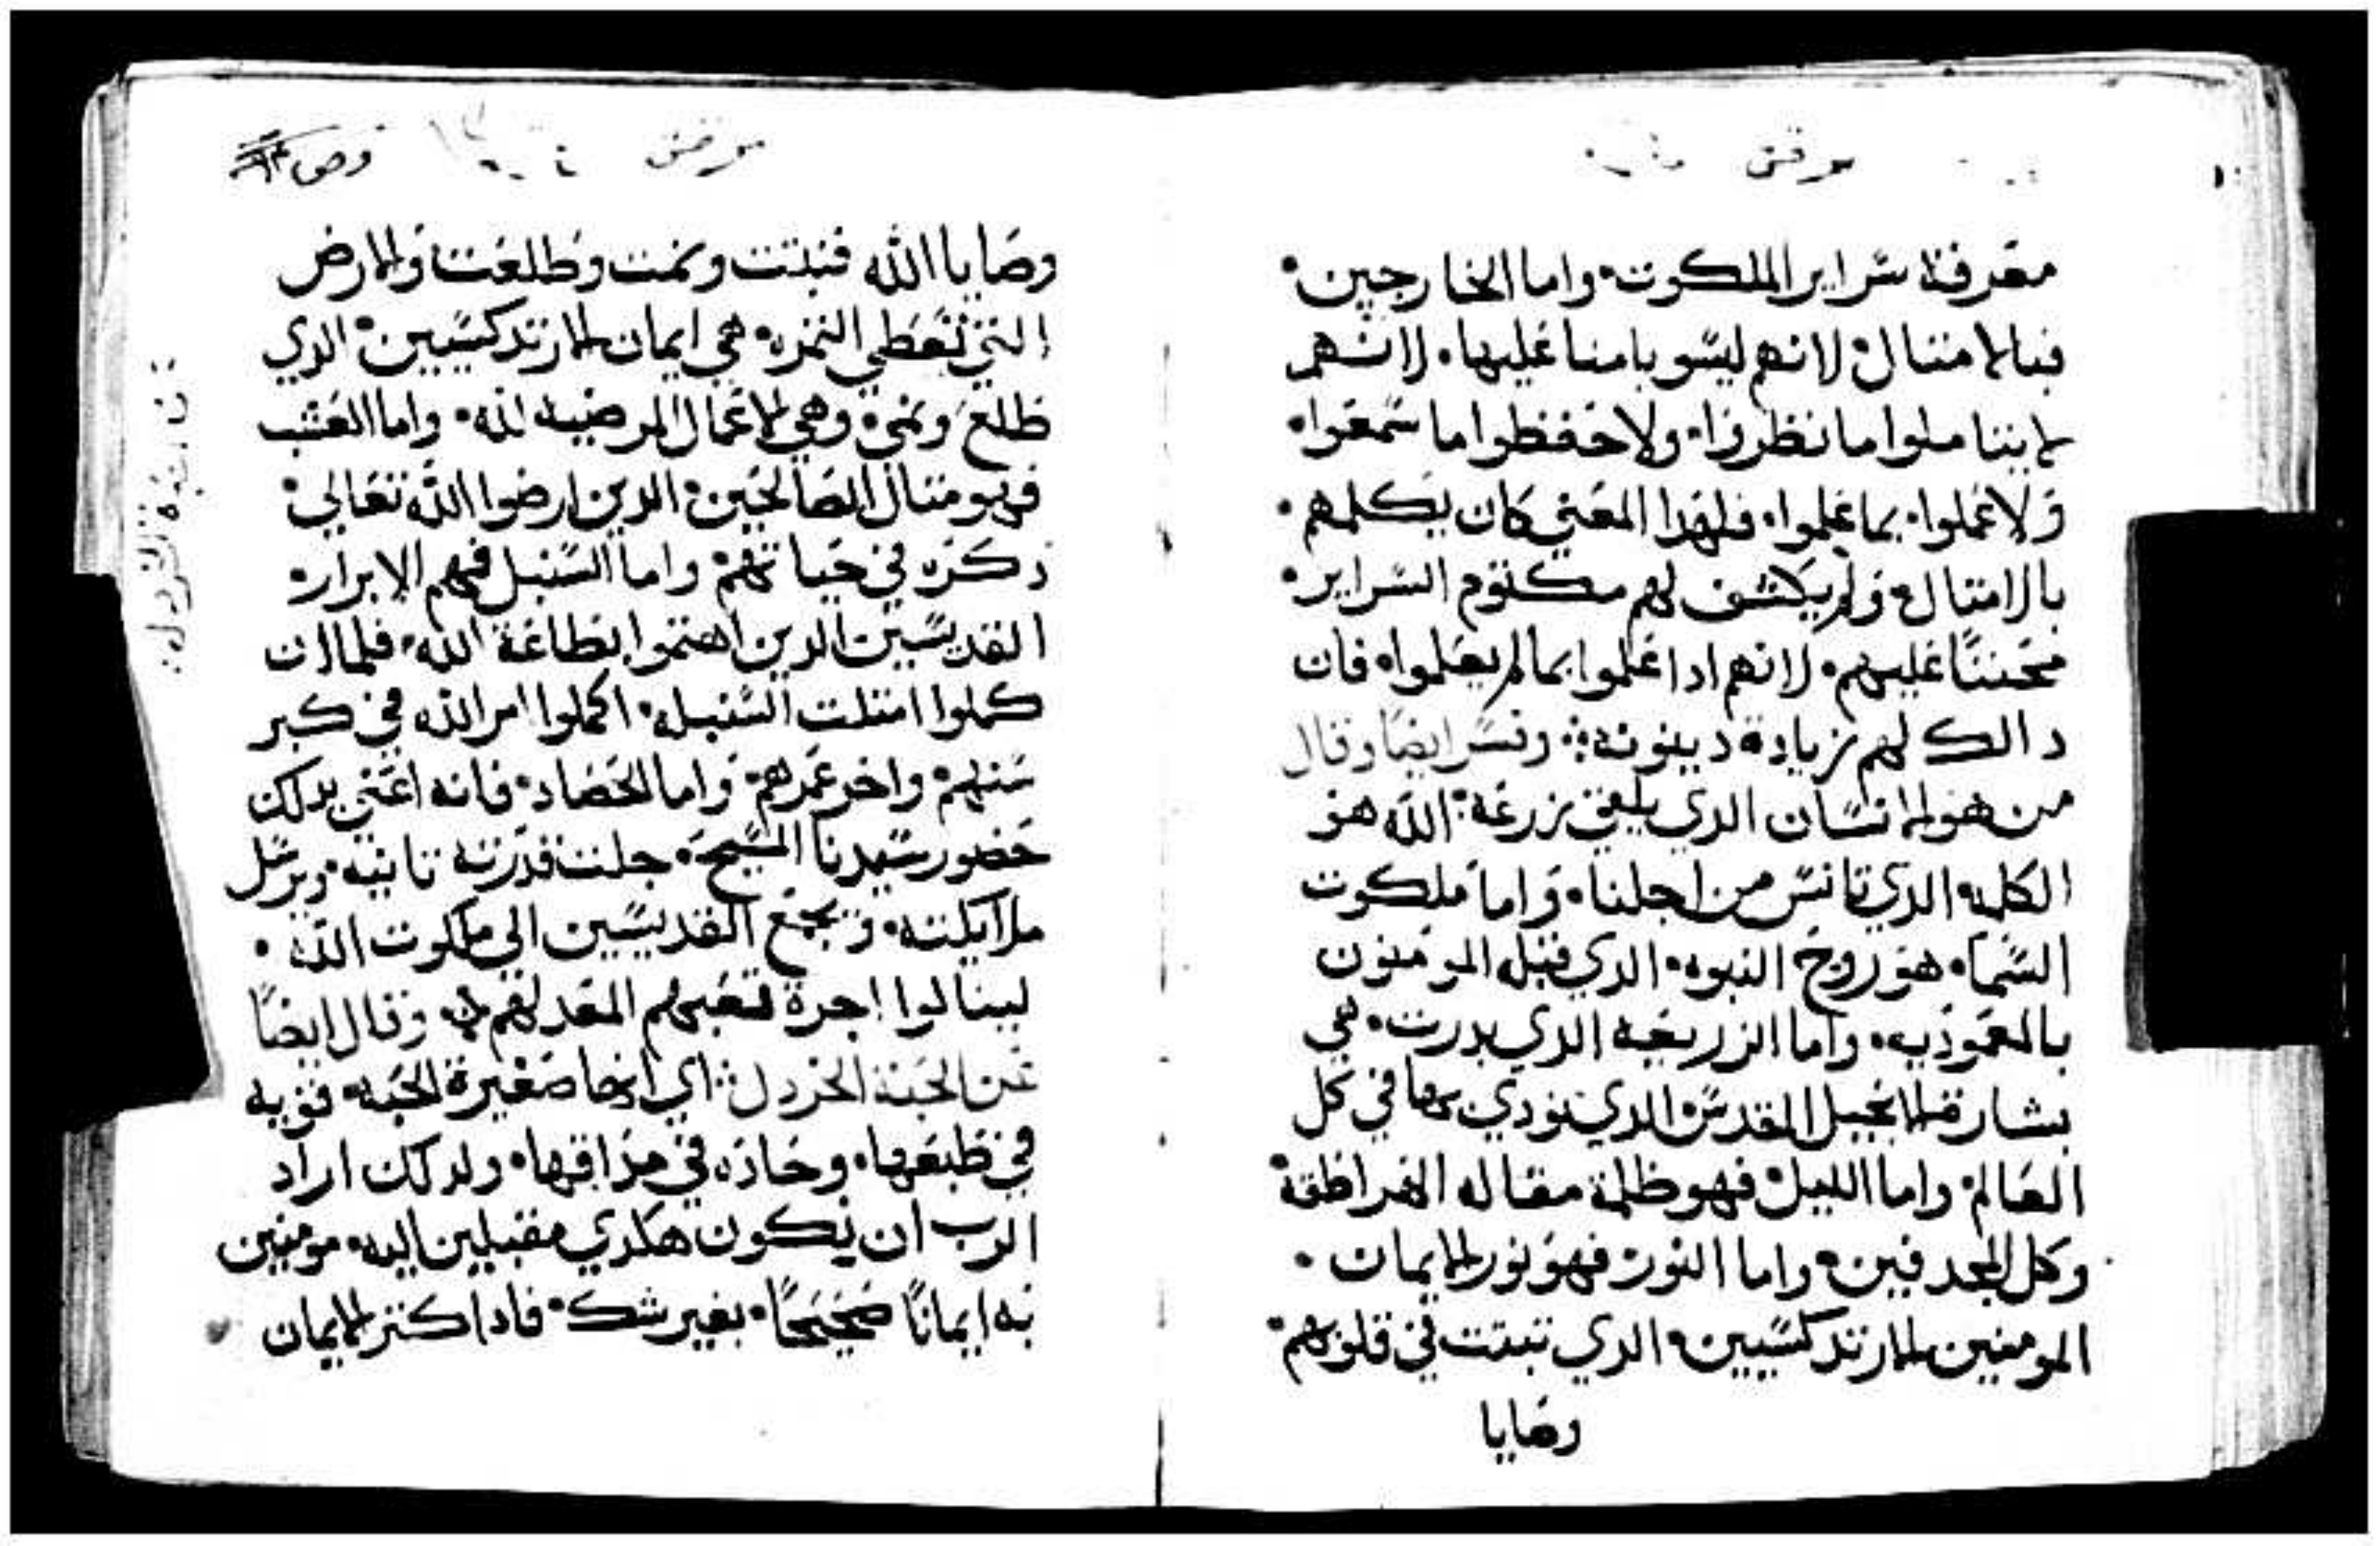 مرقس
معرفة سراير الملكوت واما الخارجين
فبالامتال لانهم ليسو بامنا عليها لانهم
لا يتاملوا ما نظروا ولا حفظوا ما سمعوا
ولا عملوا بما علموا فلهدا المعني كان يكلمهم
بالامتال ولم يكشف لهم مكتوم السراير
تحننًا عليهم لانهم ادا علموا بما لم يعملوا فان
دالك لهم زيادة دينونه وفسر ايضًا وقال
من هو الانسان الدي يلقي زرعه الله هو
الكلمه الدي تانس من اجلنا واما ملكوت
السما هو روح النبوه الدي قبله المومنون
بالعموديه واما الزريعه الدي بدرت هي
بشارة الانجيل المقدس الدي نودي بها في كل
العالم واما الليل فهو ظلمة مقاله الهراطقه
وكل المجدفين واما النور فهو نور الايمان
المومنين الارتدكسيين الدي تبتت في قلوبهم
وصايا
مرقس
وصايا الله فنبتت ونمت وطلعت والارض
التي تعطي التمره هي ايمان الارتدكسيين الدي
طلع ونمي وهي الاعمال المرضيه لله واما العشب
فهو متال الصالحين الدين ارضوا الله تعالي
دكره في حياتهم واما السنبل فهم الابرار
القديسين الدين اهتموا بطاعة الله فلما ان
كملوا امتلت السنبله اكملوا امر الله في كبر
سنهم واخر عمرهم واما الحصاد فانه اعني بدلك
حضور سيدنا المسيح جلت قدرته تانيه ويرسل
ملايكته ويجمع القديسين الي ملكوت الله
لينالوا اجرة تعبهم المعد لهم وقال ايضًا
عن الحبة الخردل اي انها صغيرة الحبه قويه
في طبعها وحاده في مداقها ولدلك اراد
الرب ان يكون هكدي مقبلين اليه مومنين
به ايمانًا صحيحًا بغير شك فادا كتر الايمان